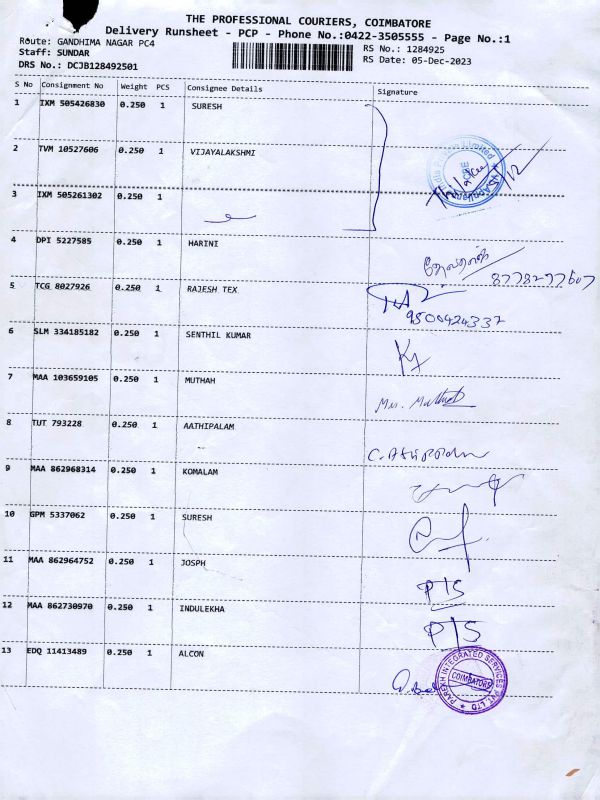 THE PROFESSIONAL COURIERS, COIMBATORE
Delivery Runsheet - PCP - Phone No.:0422-3505555 - Page No.:1
Route: GANDHIMA NAGAR PC4
RS No.: 1284925
Staff: SUNDAR
RS Date: 05-Dec-2023
DRS No.: DCJB128492501
S No Consignment No Weight PCS Consignee Details Signature
1 IXM 505426830 0.250 1 SURESH
2 TVM 10527606 0.250 1 VIJAYALAKSHMI
3 IXM 505261302 0.250 1
4 DPI 5227585 0.250 1 HARINI
8778297607
5 TCG 8027926 0.250 1 RAJESH TEX
9500424337
6 SLM 334185182 0.250 1 SENTHIL KUMAR
7 MAA 103659105 0.250 1 MUTHAH
8 TUT 793228 0.250 1 AATHIPALAM
9 MAA 862968314 0.250 1 KOMALAM
10 GPM 5337062 0.250 1 SURESH
11 MAA 862964752 0.250 1 JOSPH
PTS
12 MAA 862730970 0.250 1 INDULEKHA
PTS
13 EDQ 11413489 0.250 1 ALCON
PAREKH INTEGRATED SERVICES PVT. LTD
COIMBATORE